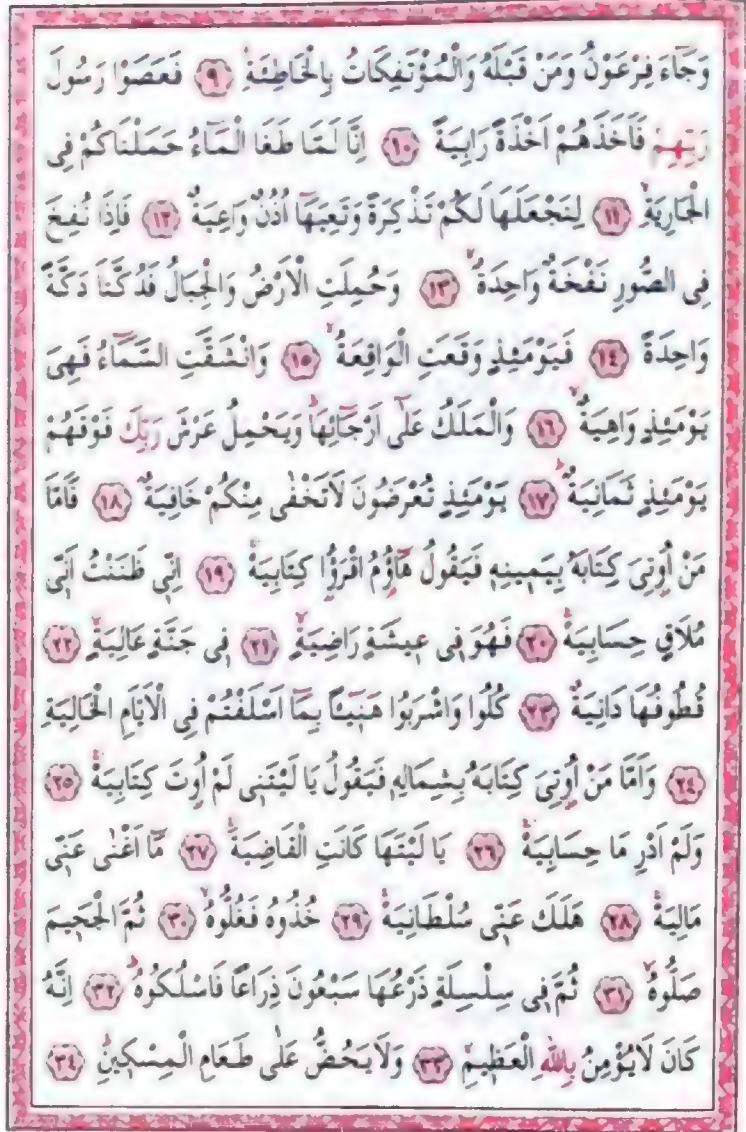 وَجَٓاءَ فِرْعَوْنُ وَمَنْ قَبْلَهُ وَالْمُؤْتَفِكَاتُ بِالْخَاطِئَةِۚ ﴿٩﴾ فَعَصَوْا رَسُولَ
رَبِّهِمْ فَاَخَذَهُمْ اَخْذَةً رَابِيَةً ﴿١٠﴾ اِنَّا لَمَّا طَغَا الْمَٓاءُ حَمَلْنَاكُمْ فِى
الْجَارِيَةِۙ ﴿١١﴾ لِنَجْعَلَهَا لَكُمْ تَذْكِرَةً وَتَعِيَهَٓا اُذُنٌ وَاعِيَةٌ ﴿١٢﴾ فَاِذَا نُفِخَ
فِى الصُّورِ نَفْخَةٌ وَاحِدَةٌۙ ﴿١٣﴾ وَحُمِلَتِ الْاَرْضُ وَالْجِبَالُ فَدُكَّتَا دَكَّةً
وَاحِدَةً ﴿١٤﴾ فَيَوْمَئِذٍ وَقَعَتِ الْوَاقِعَةُۙ ﴿١٥﴾ وَانْشَقَّتِ السَّمَٓاءُ فَهِىَ
يَوْمَئِذٍ وَاهِيَةٌۙ ﴿١٦﴾ وَالْمَلَكُ عَلٰٓى اَرْجَٓائِهَاۜ وَيَحْمِلُ عَرْشَ رَبِّكَ فَوْقَهُمْ
يَوْمَئِذٍ ثَمَانِيَةٌۜ ﴿١٧﴾ يَوْمَئِذٍ تُعْرَضُونَ لَا تَخْفٰى مِنْكُمْ خَافِيَةٌ ﴿١٨﴾ فَاَمَّا
مَنْ اُو۫تِىَ كِتَابَهُ بِيَمِينِهِ فَيَقُولُ هَٓاؤُمُ اقْرَؤُ۫ا كِتَابِيَهْۚ ﴿١٩﴾ اِنِّى ظَنَنْتُ اَنِّى
مُلَاقٍ حِسَابِيَهْۚ ﴿٢٠﴾ فَهُوَ فِى عِيشَةٍ رَاضِيَةٍۙ ﴿٢١﴾ فِى جَنَّةٍ عَالِيَةٍۙ ﴿٢٢﴾
قُطُوفُهَا دَانِيَةٌ ﴿٢٣﴾ كُلُوا وَاشْرَبُوا هَنِٓيـًٔا بِمَٓا اَسْلَفْتُمْ فِى الْاَيَّامِ الْخَالِيَةِ
﴿٢٤﴾ وَاَمَّا مَنْ اُو۫تِىَ كِتَابَهُ بِشِمَالِهِ فَيَقُولُ يَا لَيْتَنِى لَمْ اُو۫تَ كِتَابِيَهْۚ ﴿٢٥﴾
وَلَمْ اَدْرِ مَا حِسَابِيَهْۚ ﴿٢٦﴾ يَا لَيْتَهَا كَانَتِ الْقَاضِيَةَۚ ﴿٢٧﴾ مَٓا اَغْنٰى عَنِّى
مَالِيَهْۚ ﴿٢٨﴾ هَلَكَ عَنِّى سُلْطَانِيَهْۚ ﴿٢٩﴾ خُذُوهُ فَغُلُّوهُۙ ﴿٣٠﴾ ثُمَّ الْجَحِيمَ
صَلُّوهُۙ ﴿٣١﴾ ثُمَّ فِى سِلْسِلَةٍ ذَرْعُهَا سَبْعُونَ ذِرَاعًا فَاسْلُكُوهُۜ ﴿٣٢﴾ اِنَّهُ
كَانَ لَا يُؤْمِنُ بِاللّٰهِ الْعَظِيمِۙ ﴿٣٣﴾ وَلَا يَحُضُّ عَلٰى طَعَامِ الْمِسْكِينِۜ ﴿٣٤﴾